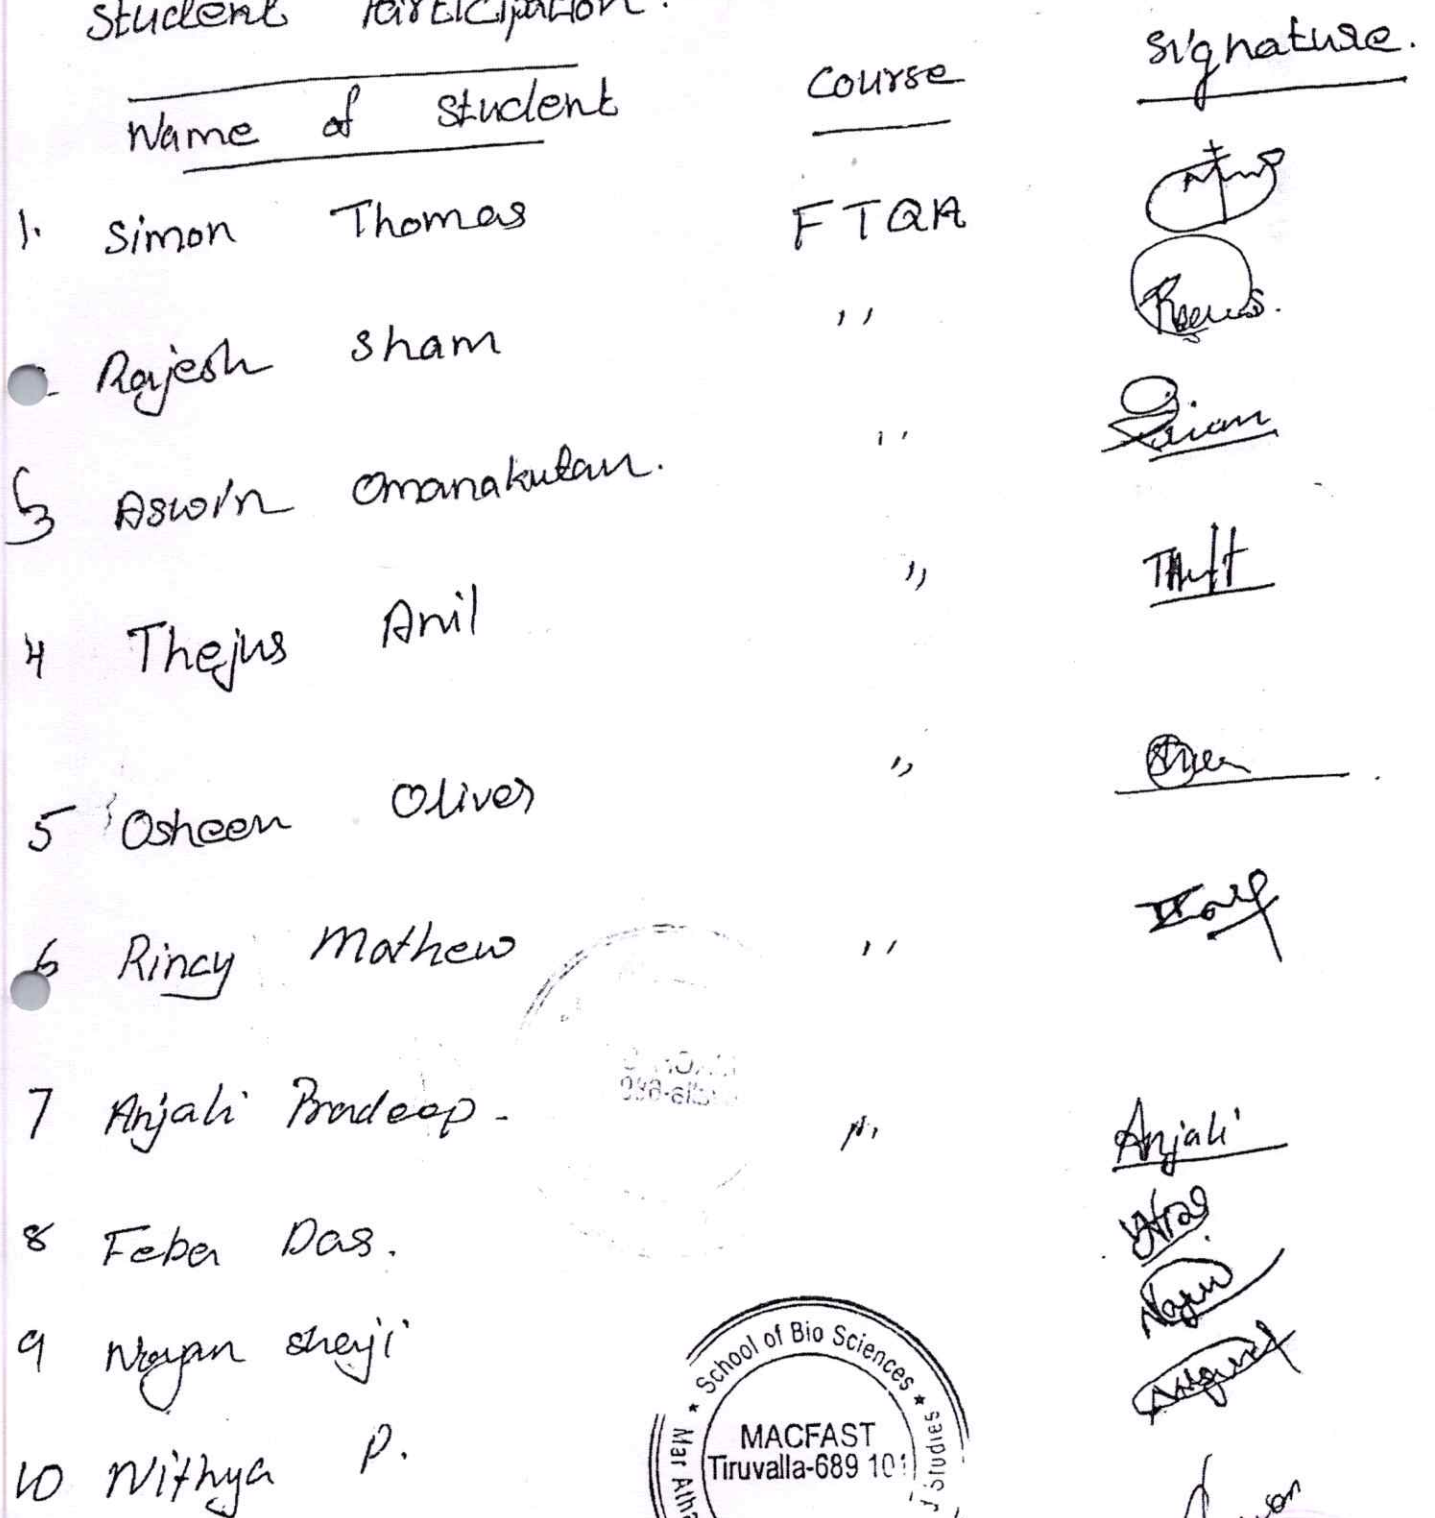 Student Participation.
Name of Student Course Signature.
1. Simon Thomas FTQA
Rajesh Sham ,,
3 Aswin Omanakutan. ,,
4 Thejus Anil ,,
5 Osheen Oliver ,,
6 Rincy Mathew ,,
7 Anjali Pradeep - ,, Anjali
8 Feba Das.
9 Nayan Sheji
10 Nithya P.
* School of Bio Sciences *
MACFAST
Tiruvalla-689 101
Mar Atha
Studies